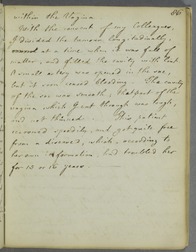 86
within the Vagina.
With the consent of my Colleagues,
I divided the tumour longitudinally,
at a time when it was full of
matter, and filled the cavity with lint
A small artery was opened in the sac,
but it soon ceased bleeding. The cavity
of the sac was smooth; that part of the
vagina which I cut through was tough,
and not thinned. This patient
recovered speedily, and got quite free
from a disease, which, according to
her own information, had troubled her
for 15 or 16 years.